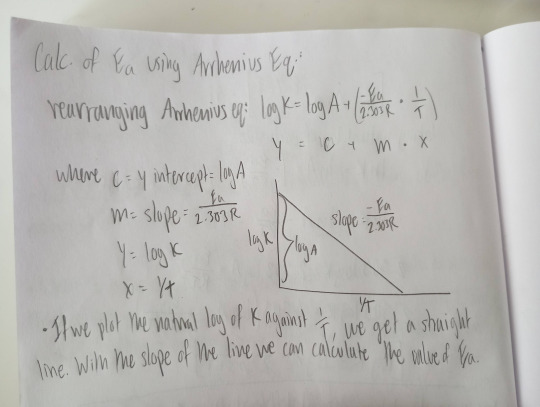 Calc. of Ea using Arrhenius Eq:
rearranging Arrhenius eq: log K = log A + (-Ea/2.303R · 1/T)
Y = C + m · x
where C = y intercept = log A
m = slope = Ea/2.303R
Y = log K
x = 1/T
log K
log A
slope = -Ea/2.303R
1/T
• If we plot the natural log of K against 1/T, we get a straight
line. With the slope of the line we can calculate the value of Ea.